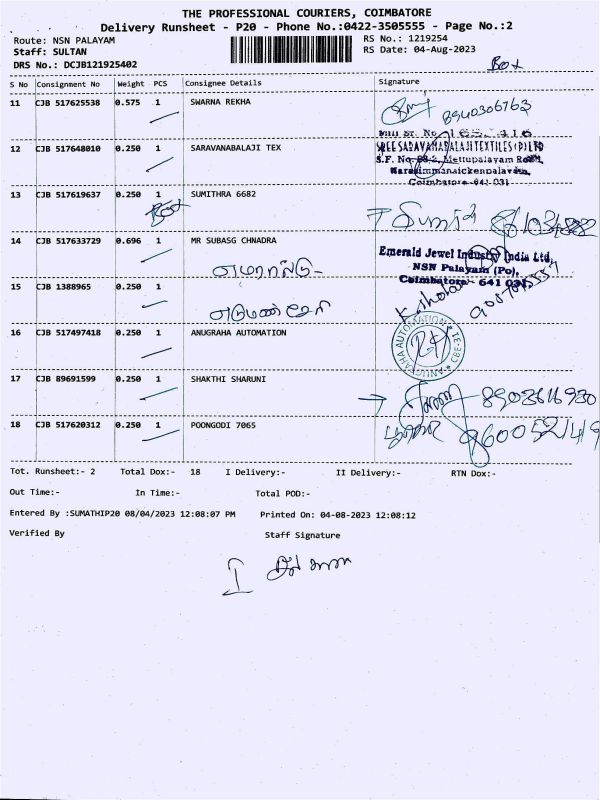 THE PROFESSIONAL COURIERS, COIMBATORE
Delivery Runsheet - P20 - Phone No.:0422-3505555 - Page No.:2
Route: NSN PALAYAM
RS No.: 1219254
Staff: SULTAN
RS Date: 04-Aug-2023
DRS No.: DCJB121925402
Box
S No Consignment No Weight PCS Consignee Details Signature
11 CJB 517625538 0.575 1 SWARNA REKHA
8940306763
12 CJB 517648010 0.250 1 SARAVANABALAJI TEX
SREE SARAVANABALAJI TEXTILES (P) LTD
Mettupalayam Road,
Narasimmanaickenpalayam,
Coimbatore-641 031
13 CJB 517619637 0.250 1 SUMITHRA 6682
Box
14 CJB 517633729 0.696 1 MR SUBASG CHNADRA
Emerald Jewel Industry India Ltd,
NSN Palayam (Po),
Coimbatore - 641 031
எமரால்டு
15 CJB 1388965 0.250 1
16 CJB 517497418 0.250 1 ANUGRAHA AUTOMATION
ANUGRAHA AUTOMATION CBE
17 CJB 89691599 0.250 1 SHAKTHI SHARUNI
18 CJB 517620312 0.250 1 POONGODI 7065
Tot. Runsheet:- 2 Total Dox:- 18 I Delivery:- II Delivery:- RTN Dox:-
Out Time:- In Time:- Total POD:-
Entered By :SUMATHIP20 08/04/2023 12:08:07 PM Printed On: 04-08-2023 12:08:12
Verified By Staff Signature